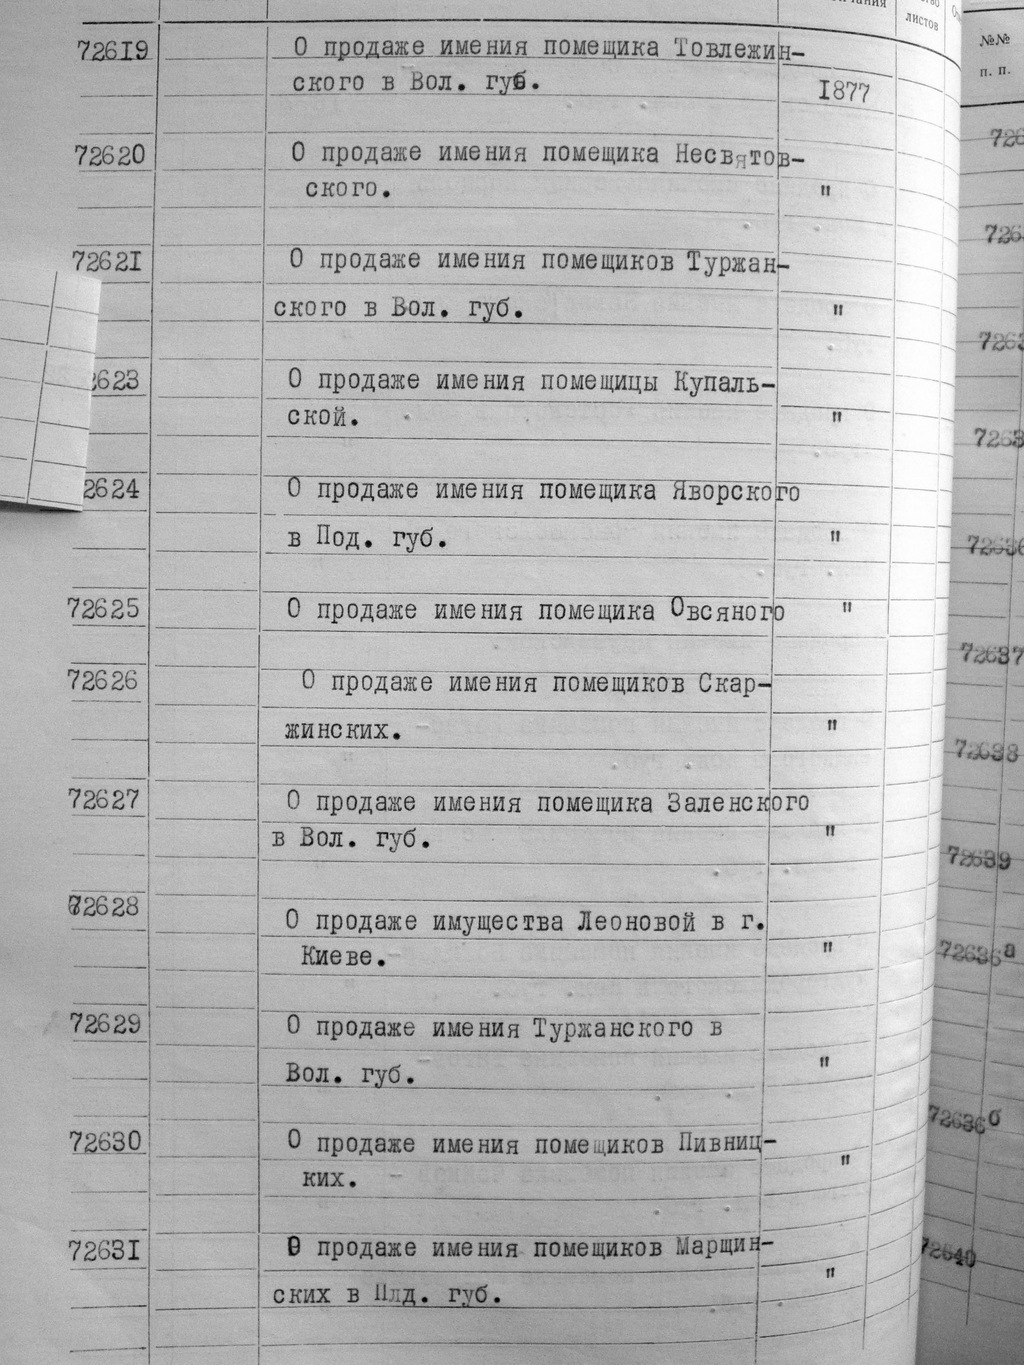 листов
№№
п. п.
72619 О продаже имения помещика Товлежин-
ского в Вол. губ. 1877
72620 О продаже имения помещика Несвятов-
ского. "
72621 О продаже имения помещиков Туржан-
ского в Вол. губ. "
2623 О продаже имения помещицы Купаль-
ской. "
2624 О продаже имения помещика Яворского
в Под. губ. "
72625 О продаже имения помещика Овсяного "
72626 О продаже имения помещиков Скар-
жинских. "
72627 О продаже имения помещика Заленского
в Вол. губ. "
72628 О продаже имущества Леоновой в г.
Киеве. "
72629 О продаже имения Туржанского в
Вол. губ. "
72630 О продаже имения помещиков Пивниц-
ких. "
72631 О продаже имения помещиков Марщин-
ских в Плд. губ. "
72637
72638
72639
72636а
72636б
72640